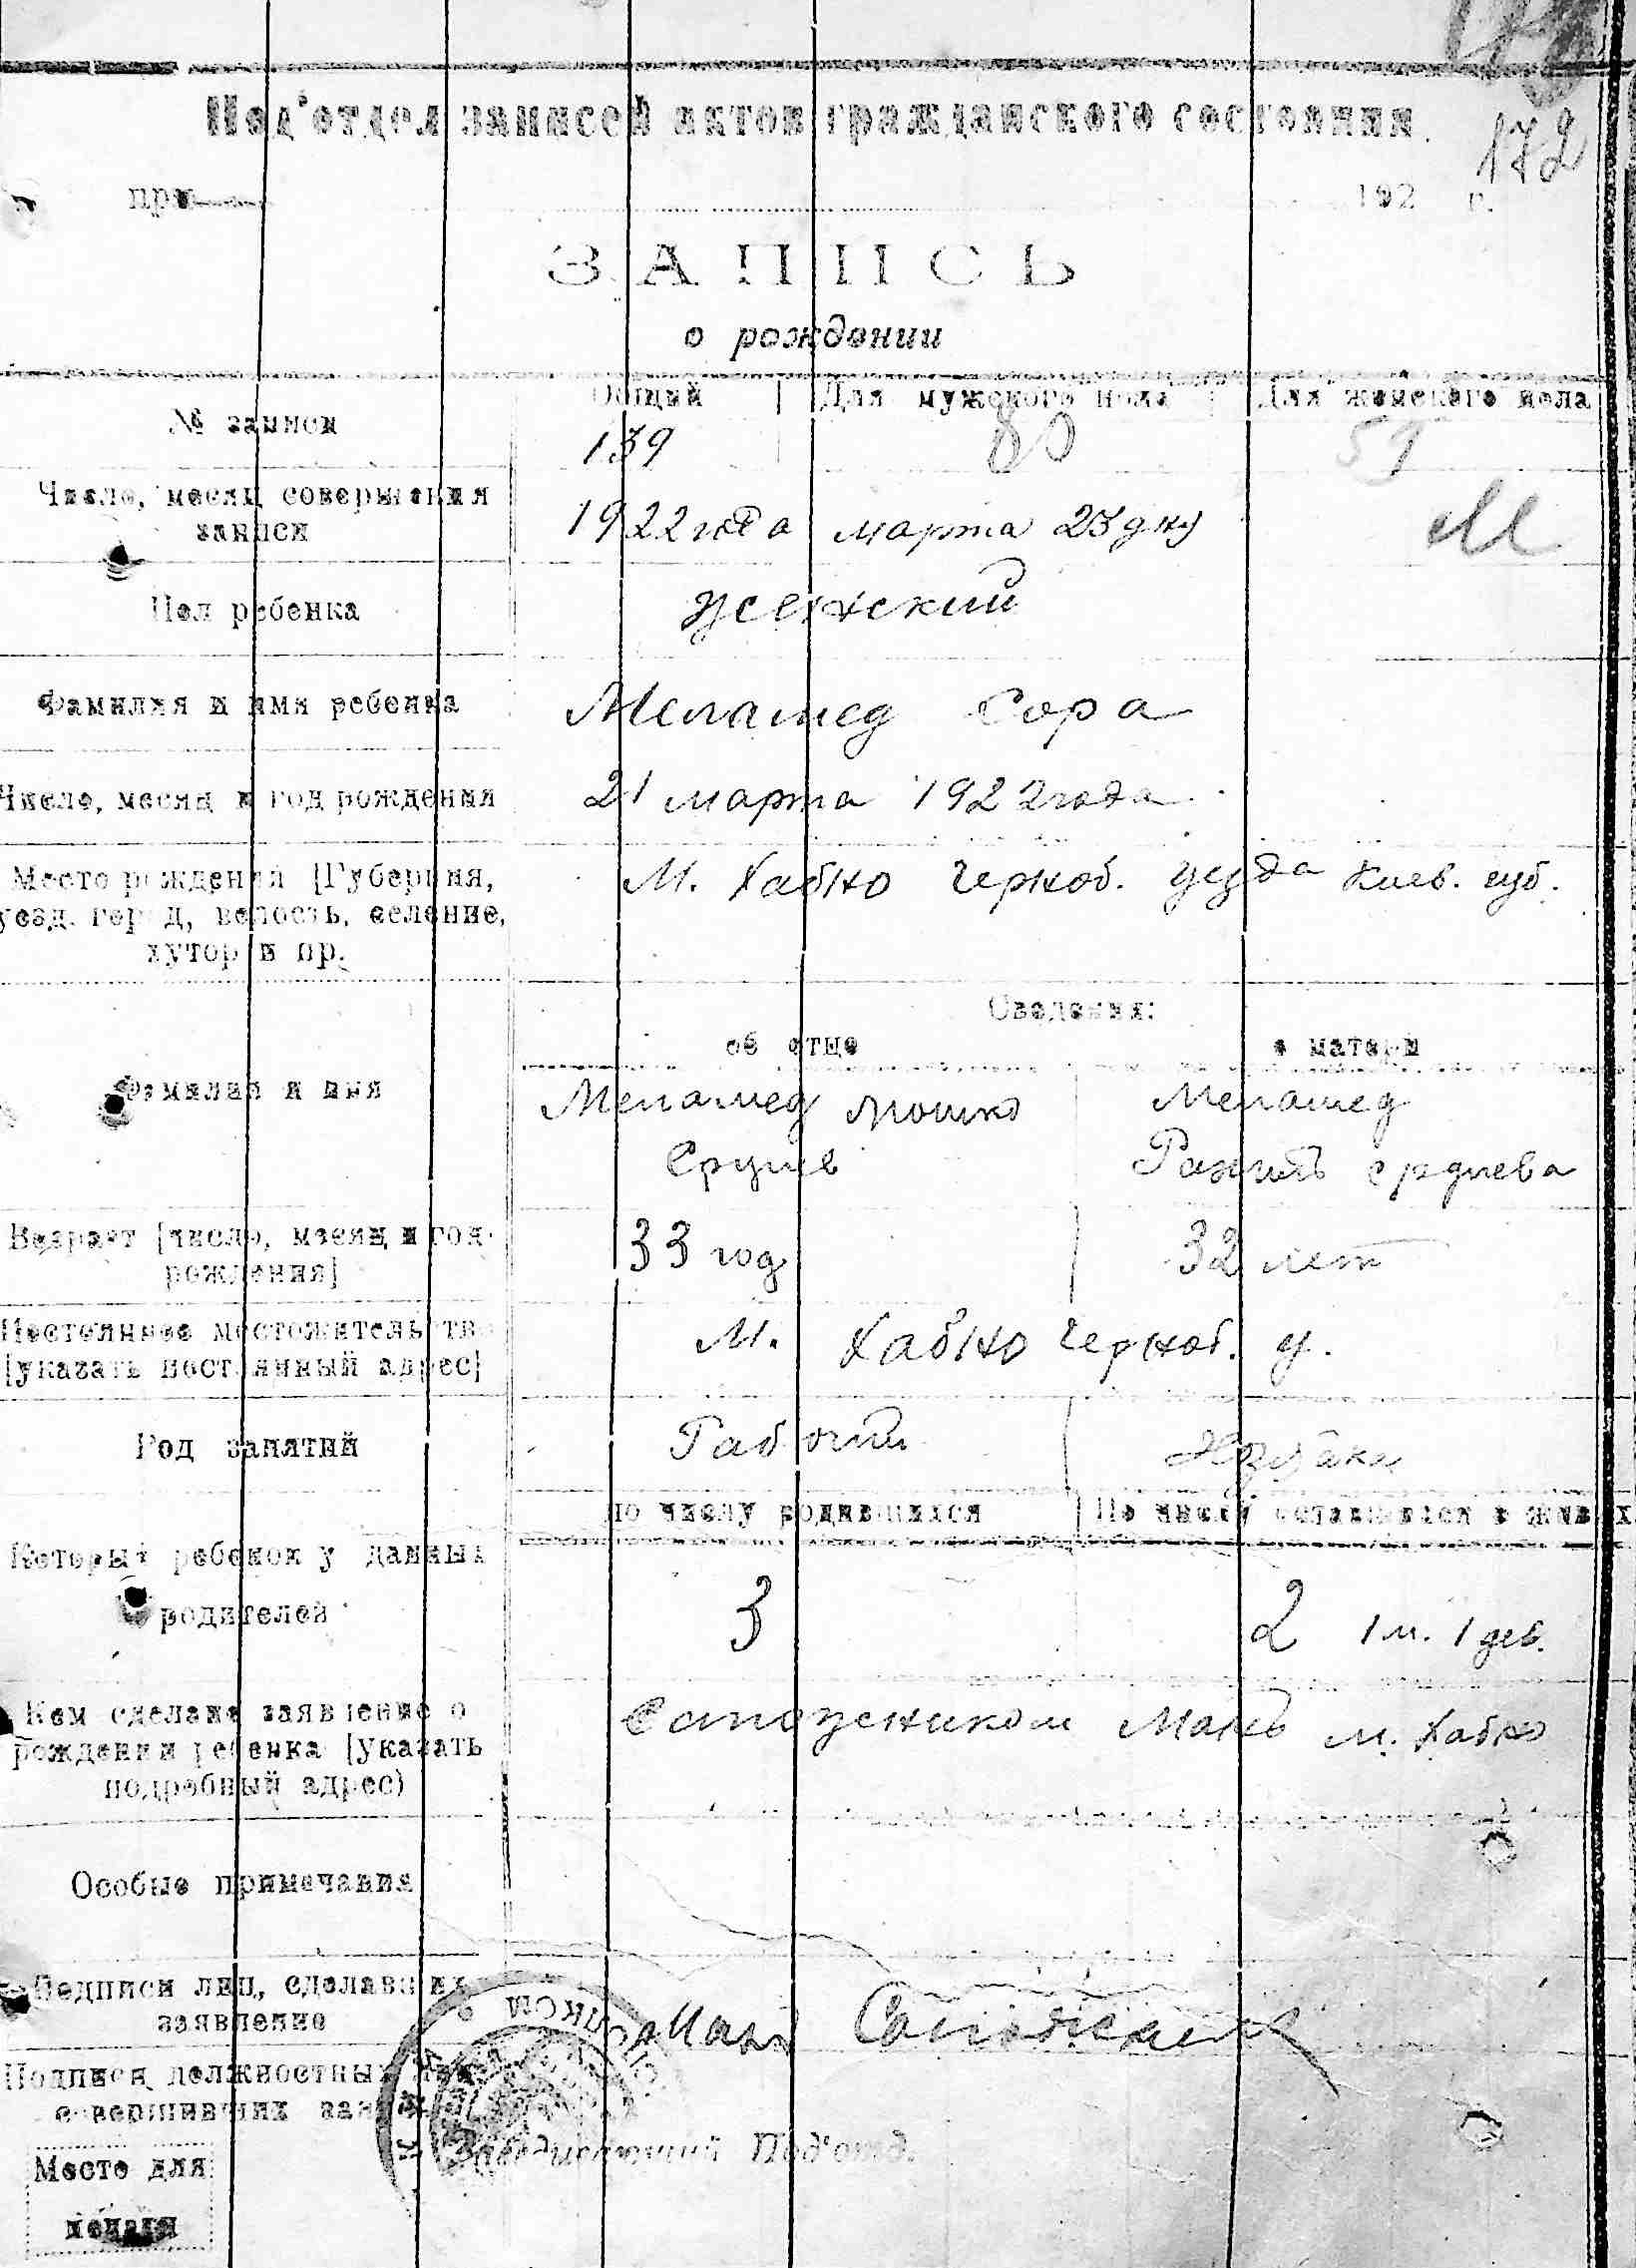 172
Под'отдел записей актов гражданского состояния.
при 192 г.
ЗАПИСЬ
о рождении
№ записи Общий Для мужского пола Для женского пола
139 80 59
Число, месяц совершения записи 1922 года марта 23 дня М
Пол ребенка женский
Фамилия и имя ребенка Меламед Сора
Число, месяц и год рождения 21 марта 1922 года
Место рождения [Губерния, М. Хабно Черноб. уезда Киев. губ.
уезд, город, волость, селение,
хутор и пр.
Сведения:
об отце о матери
Фамилия и имя Меламед Мошко Меламед
Срулев Срулева
Возраст [число, месяц и год 33 год 32 лет
рождения]
Постоянное местожительство М. Хабно Черноб. у.
[указать постоянный адрес]
Род занятий Рабочий
По числу родившихся По числу оставшихся в живых
Который ребенок у данных
родителей 3 2 1 м. 1 дев.
Кем сделано заявление о Сапожником м. Хабно
рождении ребенка [указать
подробный адрес)
Особые примечания
Подписи лиц, сделавших
заявление
Подписи должностных лиц
совершивших запись
Заведывающий Под'отд.
Место для
печати